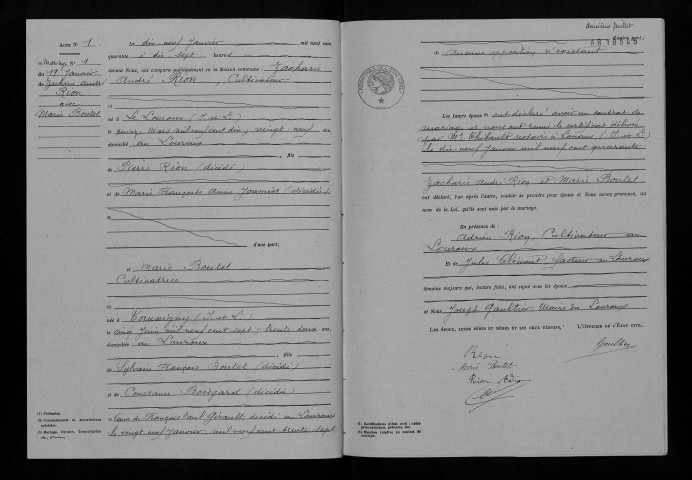 Acte N° 1
Mariage N° 1
du 19 Janvier
Zacharie André
Rion
avec
Marie Boutet
Le dix neuf Janvier mil neuf cent
quarante à dix sept heures
devant Nous, ont comparu publiquement en la Maison commune : Zacharie
André Rion, Cultivateur
né à Le Louroux (I. et L.)
le quinze Mars mil neuf cent dix, vingt neuf ans,
domicilié au Louroux
fils
de Pierre Rion (décédé)
et de Marie Françoise Anne Journier (décédée)
d'une part ;
et Marie Boutet
Cultivatrice
née à Tauxigny (I. et L.)
le cinq Juin mil neuf cent sept, trente deux ans,
domiciliée au Louroux
fille
de Sylvain François Boutet (décédé)
et de Constance Boisgard (décédée)
Veuve de François Paul Girault, décédé au Louroux
le vingt neuf Janvier mil neuf cent trente sept
(1) Profession
deuxième feuillet
d'autre part ;
Aucune opposition n'existant
Les futurs époux ont déclaré avoir un contrat de
mariage et nous ont remis le certificat délivré
par Me Thibault notaire à Louans (I. et L.)
le dix neuf Janvier mil neuf cent quarante
Zacharie André Rion et Marie Boutet
ont déclaré, l'un après l'autre, vouloir se prendre pour époux et Nous avons prononcé, au
nom de la Loi, qu'ils sont unis par le mariage.
En présence de :
Adrien Rion, Cultivateur au
Louroux
Et de Jules Clément, facteur au Louroux
témoins majeurs qui, lecture faite, ont signé avec les époux
et Nous Joseph Gaultier, Maire du Louroux
L'Officier de l'État civil.
Rion
Marie Boutet
Rion